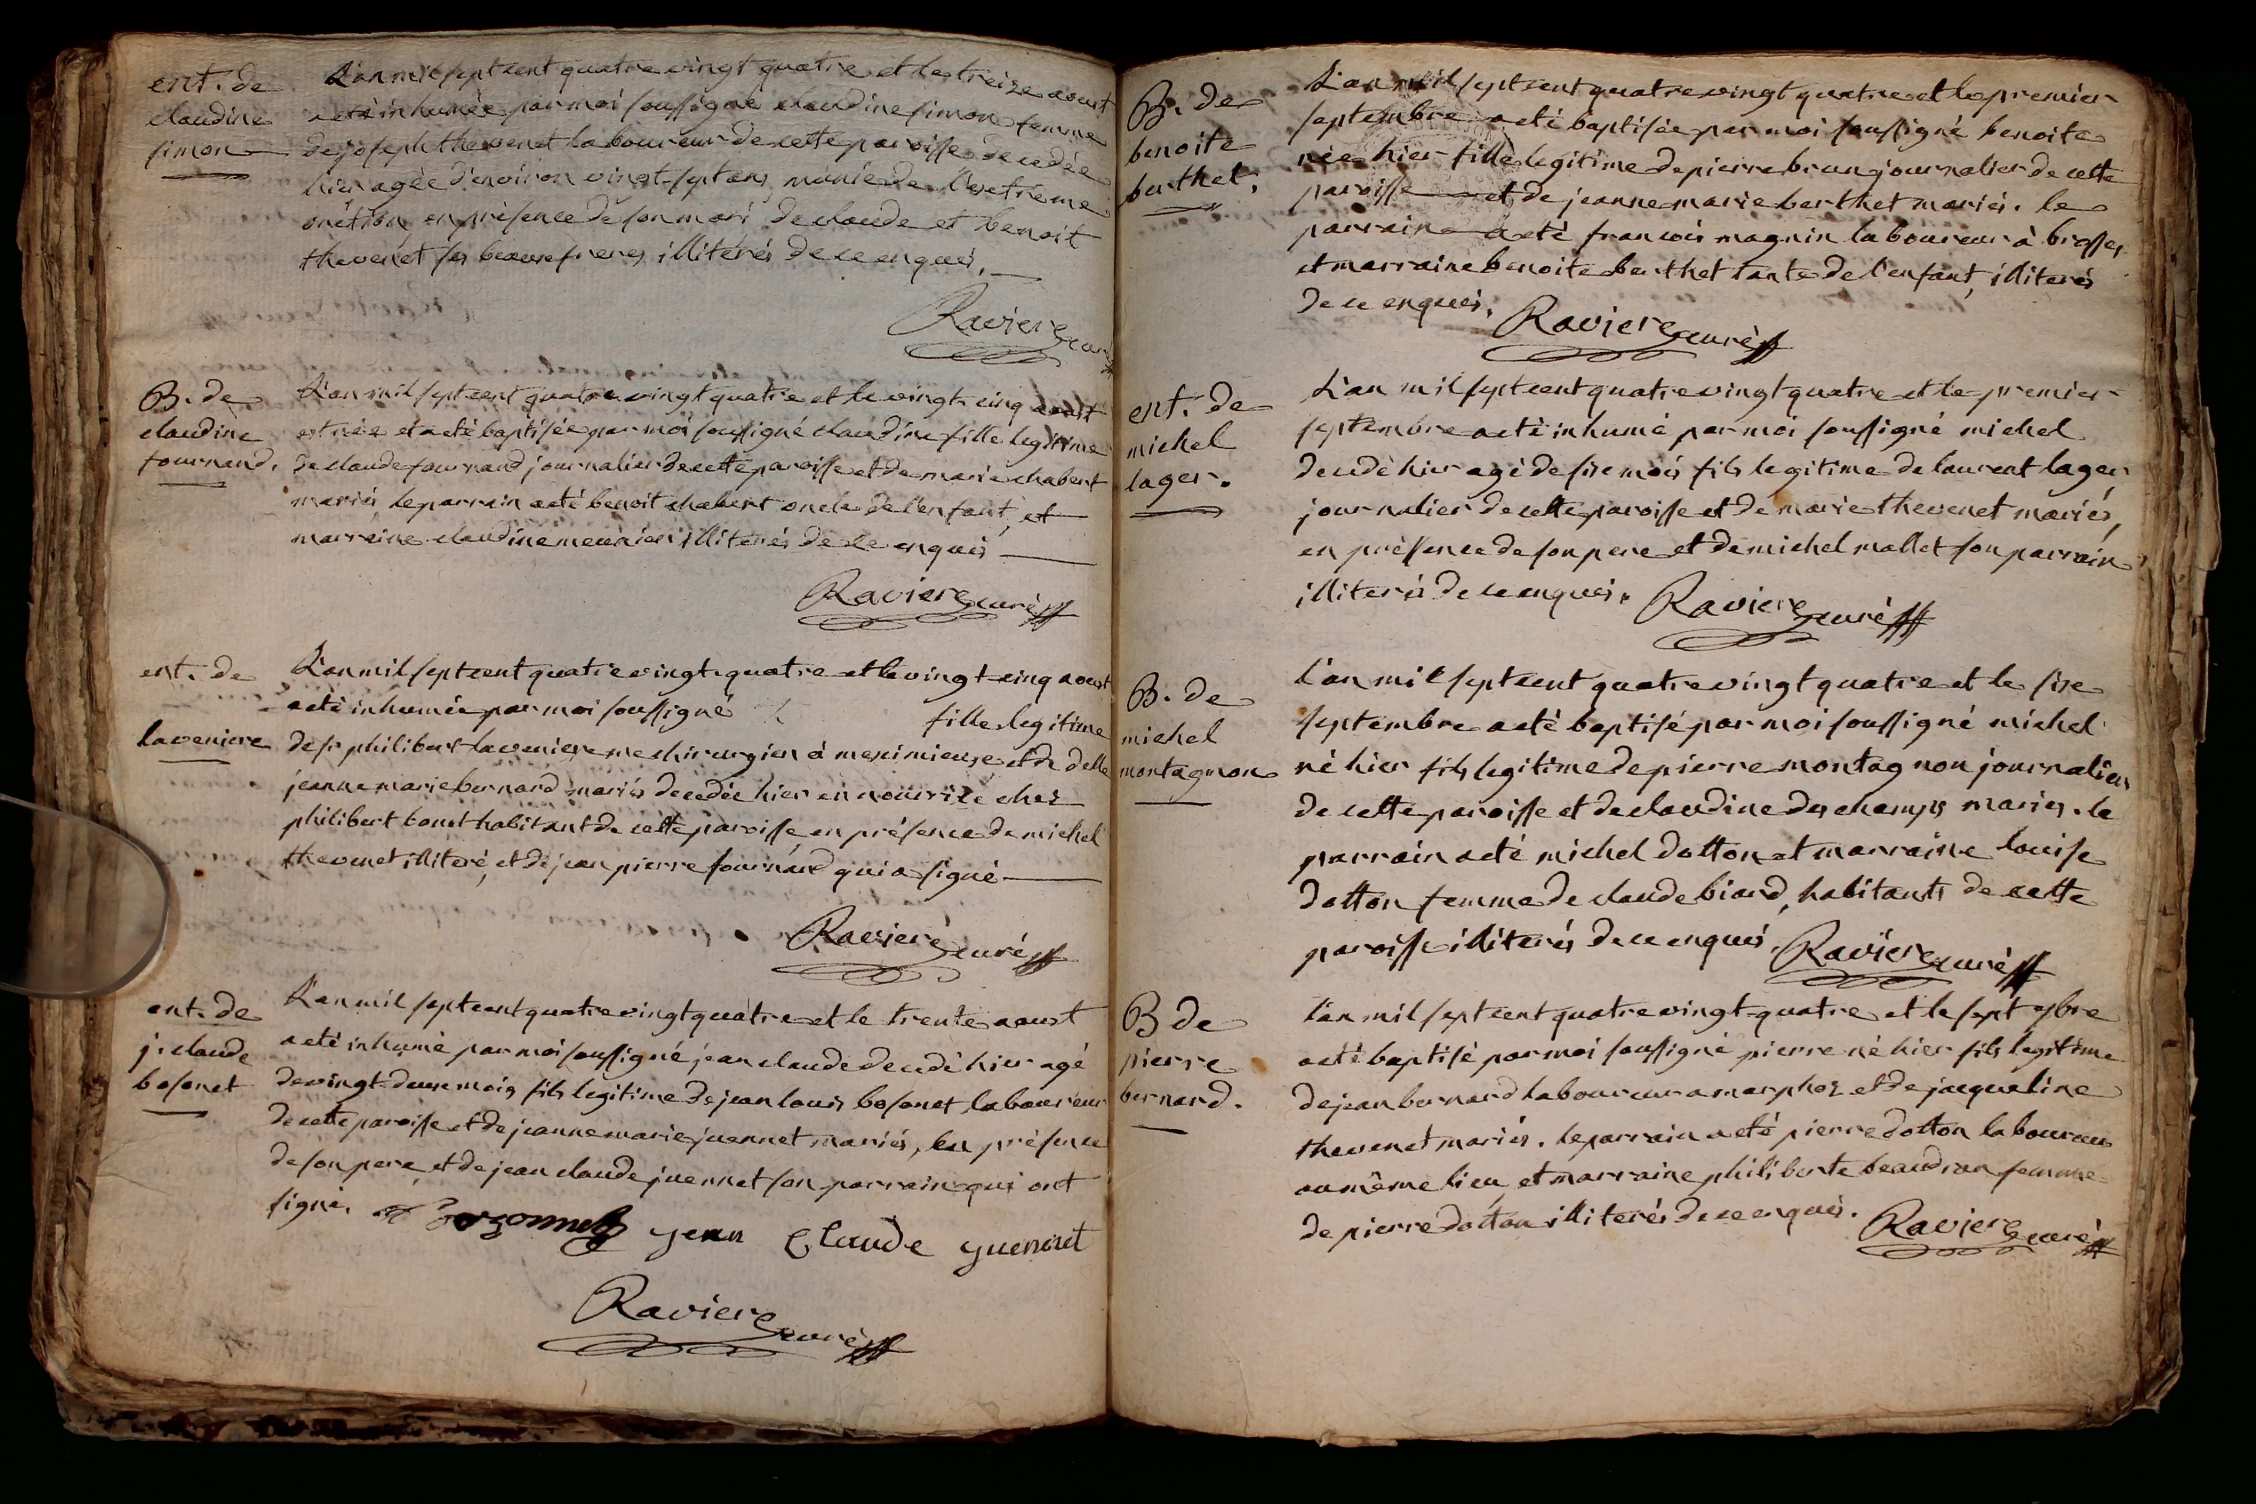 ent. de
claudine
simon
L'an mil sept cent quatre vingt quatre et le treize aoust
a été inhumée par moi soussigné claudine simon femme
de joseph thevenet laboureur de cette paroisse decedée
hier agée d'environ vingt-sept ans munie de l'extreme
onction en présence de son mari de claude et benoit
thevenet ses beaux freres illitérés de ce enquis.
Raviere curé
B. de
claudine
fournand.
L'an mil sept cent quatre vingt quatre et le vingt cinq aoust
est née et a été baptisée par moi soussigné claudine fille legitime
de claude fournand journalier de cette paroisse et de marie chabert
mariés le parrain a été benoit chabert oncle de l'enfant, et
marraine claudine meunier illiterés de ce enquis
Raviere curé
ent. de
laveniere
L'an mil sept cent quatre vingt quatre et le vingt cinq aoust
a été inhumée par moi soussigné fille legitime
de sr philibert laveniere me chirurgien à meximieux et de delle
jeanne marie bernard mariés decedée hier en nourrice chez
philibert bonet habitant de cette paroisse en présence de michel
thevenet illiteré, et de jean pierre fournand qui a signé
Raviere curé
ent. de
j. claude
bosonet
L'an mil sept cent quatre vingt quatre et le trente aoust
a été inhumé par moi soussigné jean claude decedé hier agé
de vingt-deux mois fils legitime de jean louis bosonet laboureur
de cette paroisse et de jeanne marie juennet mariés, en présence
de son pere et de jean claude juennet son parrain qui ont
signé.
jean Claude guennet
Raviere curé
B. de
benoite
berthet.
L'an mil sept cent quatre vingt quatre et le premier
septembre a été baptisée par moi soussigné benoite
née hier fille legitime de pierre brun journalier de cette
paroisse et de jeanne marie berthet mariés. le
parrain a été francois magnin laboureur à brosses
et marraine benoite berthet tante de l'enfant, illiterés
de ce enquis.
Raviere curé
ent. de
michel
lager.
L'an mil sept cent quatre vingt quatre et le premier
septembre a été inhumé par moi soussigné michel
decedé hier agé de six mois fils legitime de laurent lager
journalier de cette paroisse et de marie thevenet mariés,
en présence de son pere et de michel mallet son parrain
illiterés de ce enquis.
Raviere curé
B. de
michel
montagnon
L'an mil sept cent quatre vingt quatre et le six
septembre a été baptisé par moi soussigné michel
né hier fils legitime de pierre montagnon journalier
de cette paroisse et de claudine deschamps mariés. le
parrain a été michel dotton et marraine louise
dotton femme de claude biard, habitants de cette
paroisse illiterés de ce enquis.
Raviere curé
B de
pierre
bernard.
L'an mil sept cent quatre vingt quatre et le sept 7bre
a été baptisé par moi soussigné pierre né hier fils legitime
de jean bernard laboureur a marphoz et de jacqueline
thevenet mariés. le parrain a été pierre dotton laboureur
au même lieu, et marraine philiberte beaudran femme
de pierre dotton illiterés de ce enquis.
Raviere curé